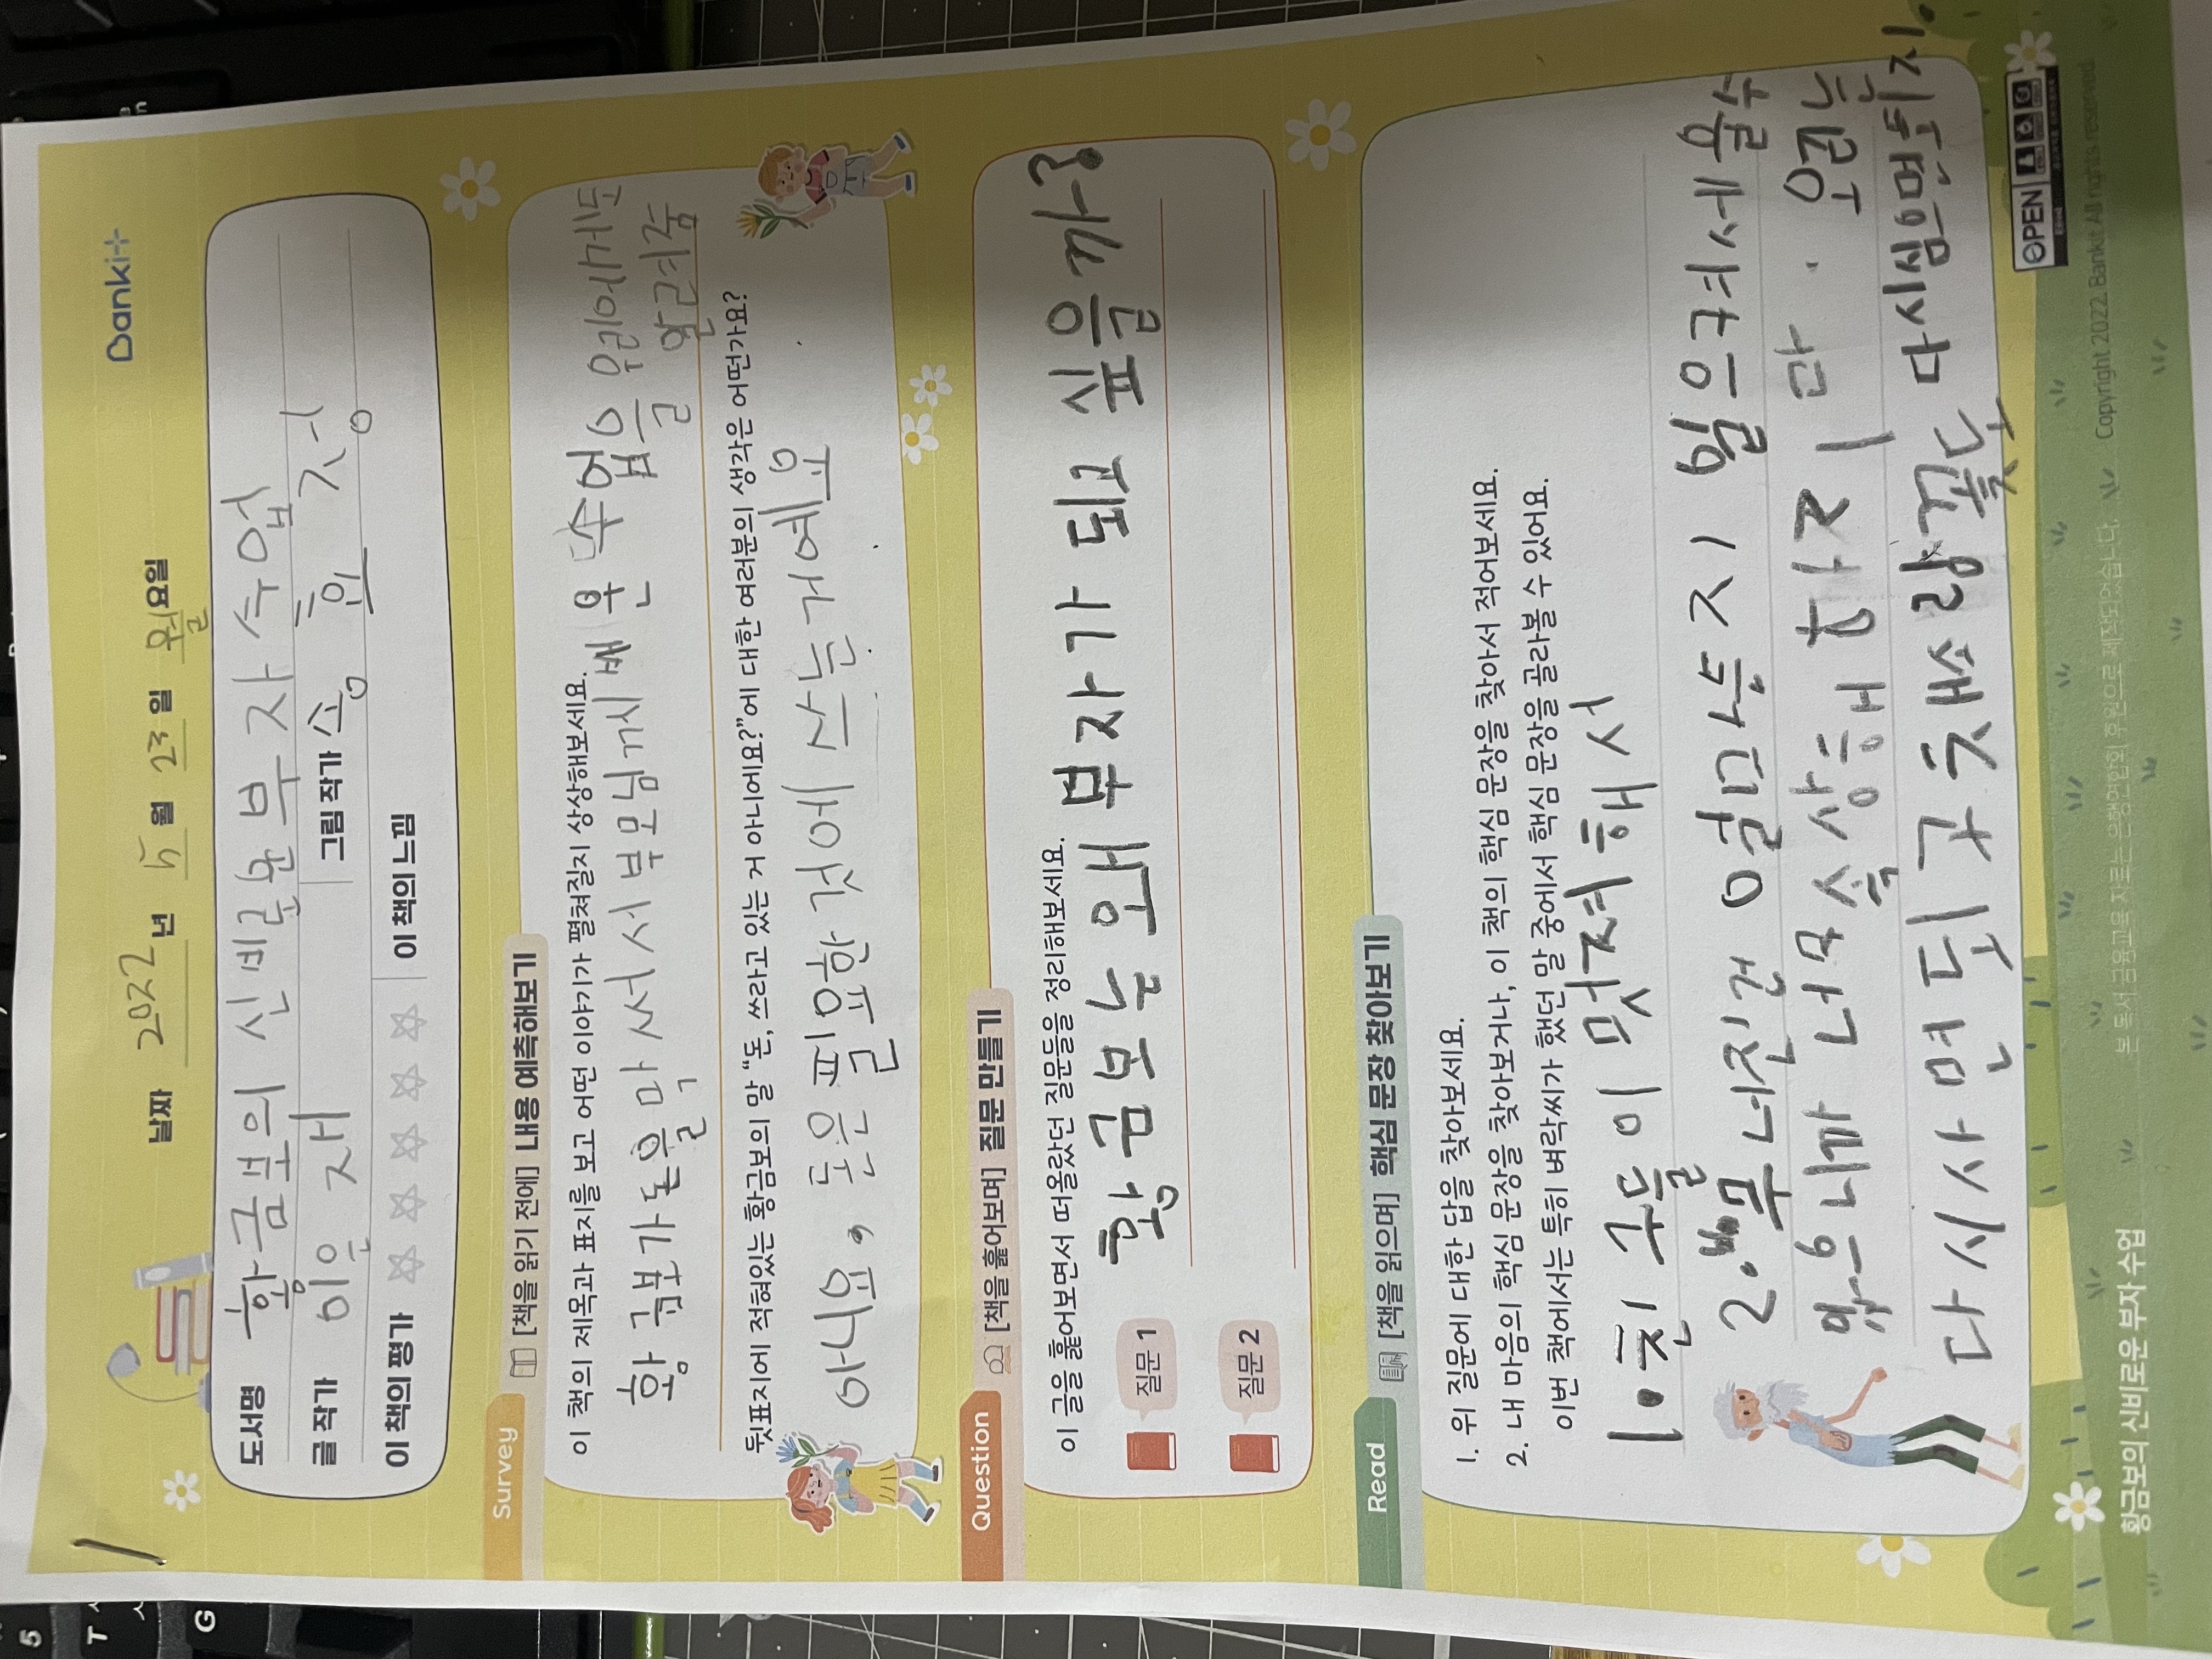 Banki
날짜 2022 년 5 월 23 일 월 요일
도서명 황금보의 신비로운 부자 수업
글 작가 이은재 그림 작가 송효정
이 책의 평가 ☆ ☆ ☆ ☆ ☆ 이 책의 느낌
Survey [책을 읽기 전에] 내용 예측해보기
이 책의 제목과 표지를 보고 어떤 이야기가 펼쳐질지 상상해보세요.
황금보가 돈을 막 써서 부모님께서 배운 수업을 우리에게도
알려줌
뒷표지에 적혀있는 황금보의 말 “돈, 쓰라고 있는 거 아니에요?”에 대한 여러분의 생각은 어떤가요?
아니요, 돈은 필요한 것에 쓰는거예요
Question [책을 훑어보며] 질문 만들기
이 글을 훑어보면서 떠올랐던 질문들을 정리해보세요.
질문 1 황금보는 왜 부자가 되고 싶을까?
질문 2
Read [책을 읽으며] 핵심 문장 찾아보기
1. 위 질문에 대한 답을 찾아보세요.
2. 내 마음의 핵심 문장을 찾아보거나, 이 책의 핵심 문장을 찾아서 적어보세요.
이번 책에서는 특히 벼락씨가 했던 말 중에서 핵심 문장을 골라볼 수 있어요.
1. 친구들이 멋져해서
2. 무너진건 얼마든지 일으켜세울수
있으니까 너무 속상해 하지 마. 우리는
다시사면 되구 채소랑꽃도 다시심으면되지.
OPEN
Copyright 2022. Bankit All rights reserved.
본 독서 금융교육 자료는 은행연합회 후원으로 제작되었습니다.
황금보의 신비로운 부자 수업
5
T
G